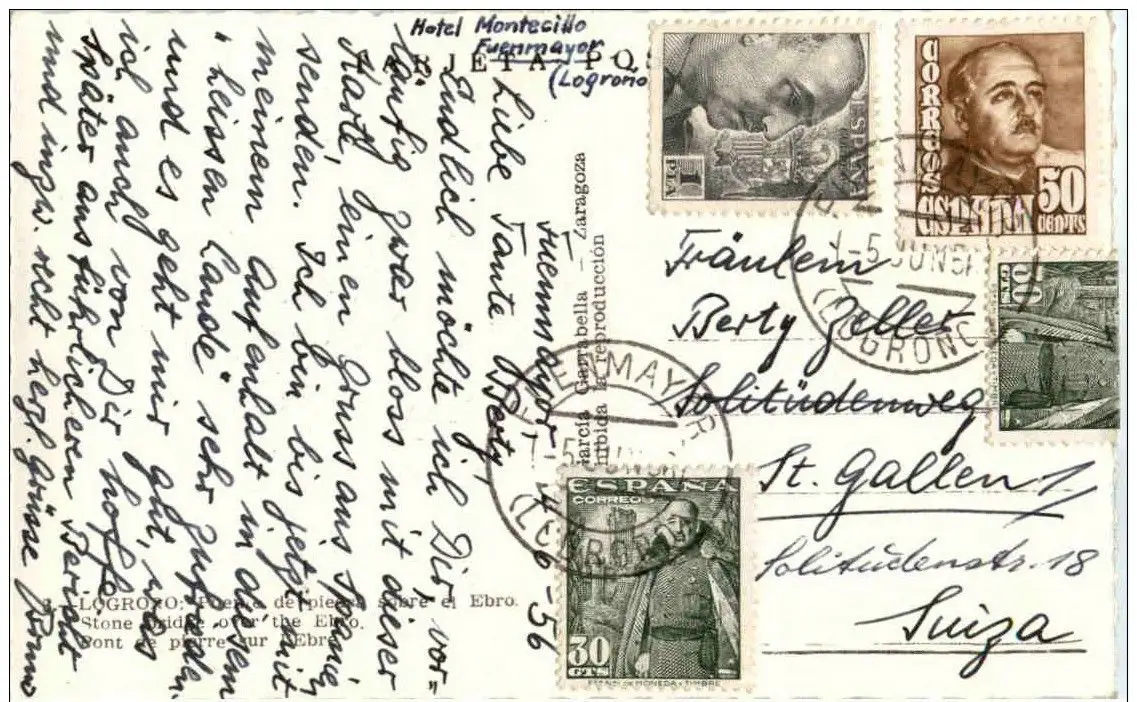 Hotel Montecillo
Fuenmayor
(Logrono
TARJETA POS
Fuenmayor, 4-6-56
Liebe Tante Berty,
Endlich möchte ich Dir, vor=
läufig zwar blos mit dieser
Karte, einen Gruss aus Spanien
senden. Ich bin bis jetzt mit
meinem Aufenhalt in diesem
"heissen Lande" sehr zufrieden.
und es geht mir gut, was
ich auch von Dir hoffe.
Später ausführlicheren Bericht
und inzw. recht herzl. Grüsse Bruno
García Garrabella - Zaragoza
hibida la reproducción
LOGROÑO: Puente de piedra sobre el Ebro.
Stone bridge over the Ebro.
Pont de pierre sur l'Ebre
ESPAÑA
1
PTA
CORREOS
ESPAÑA
50
CENTS
5 JUN 56
(LOGROÑO)
Fräulein
Berty Zeller
Solitüdenweg
St. Gallen 1/
Solitüdenstr. 18
Suiza
FUENMAYOR
(LOGROÑO)
ESPAÑA
CORREOS
30
CTS